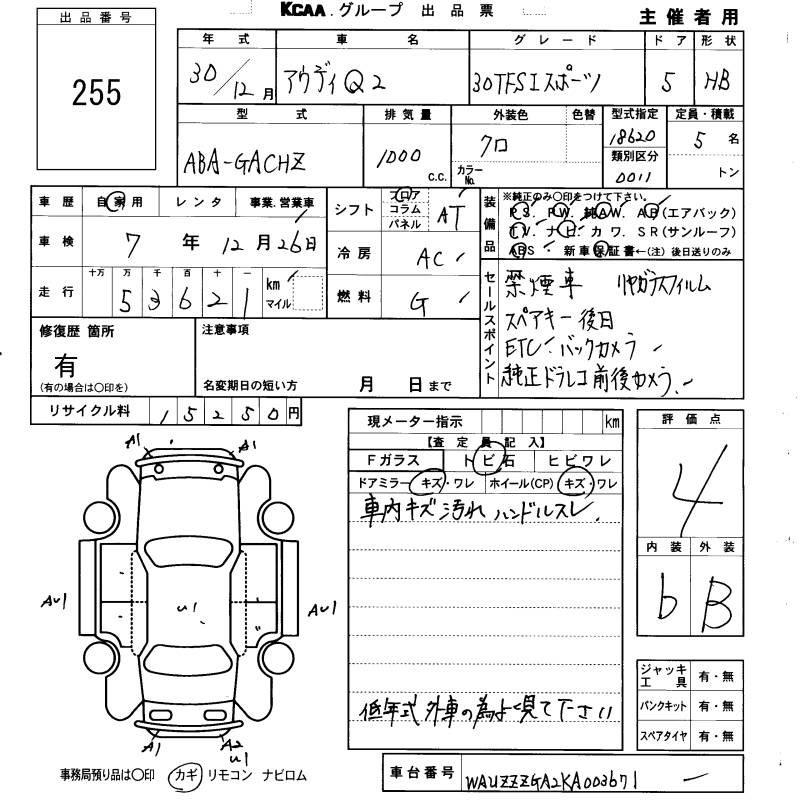 KCAA.グループ 出品票
主催者用
出品番号
255
年式 車名 グレード ドア 形状
30/12月 アウディQ2 30TFSIスポーツ 5 HB
型式 排気量 外装色 色替 型式指定 定員・積載
ABA-GACHZ 1000 C.C. クロ カラーNo. 18620 5名
類別区分
0011 トン
車歴 自家用 レンタ 事業.営業車
車検 7年12月26日
走行 十万 万 千 百 十 一 km マイル
53621
シフト フロア コラム パネル AT
冷房 AC
燃料 G
装備品 ※純正のみ○印をつけて下さい。
PS. PW. 純AW. AB(エアバック)
TV. ナビ. カワ. SR(サンルーフ)
ABS 新車保証書←(注) 後日送りのみ
セールスポイント
禁煙車 リヤガラスフィルム
スペアキー後日
ETC バックカメラ
純正ドラレコ前後カメラ
修復歴 箇所
有
(有の場合は○印を)
注意事項
名変期日の短い方 月 日まで
リサイクル料 15250円
現メーター指示 km
【査定員記入】
Fガラス トビ石 ヒビワレ
ドアミラー キズ・ワレ ホイール(CP) キズ・ワレ
車内キズ汚れ ハンドルスレ.
低年式外車の為よく見て下さい
評価点
4
内装 外装
b B
ジャッキ工具 有・無
パンクキット 有・無
スペアタイヤ 有・無
A1 A1
AU1 U1 AU1
A1 A2
U1
事務局預り品は○印 カギ リモコン ナビロム
車台番号 WAUZZZGA2KA003671 ―